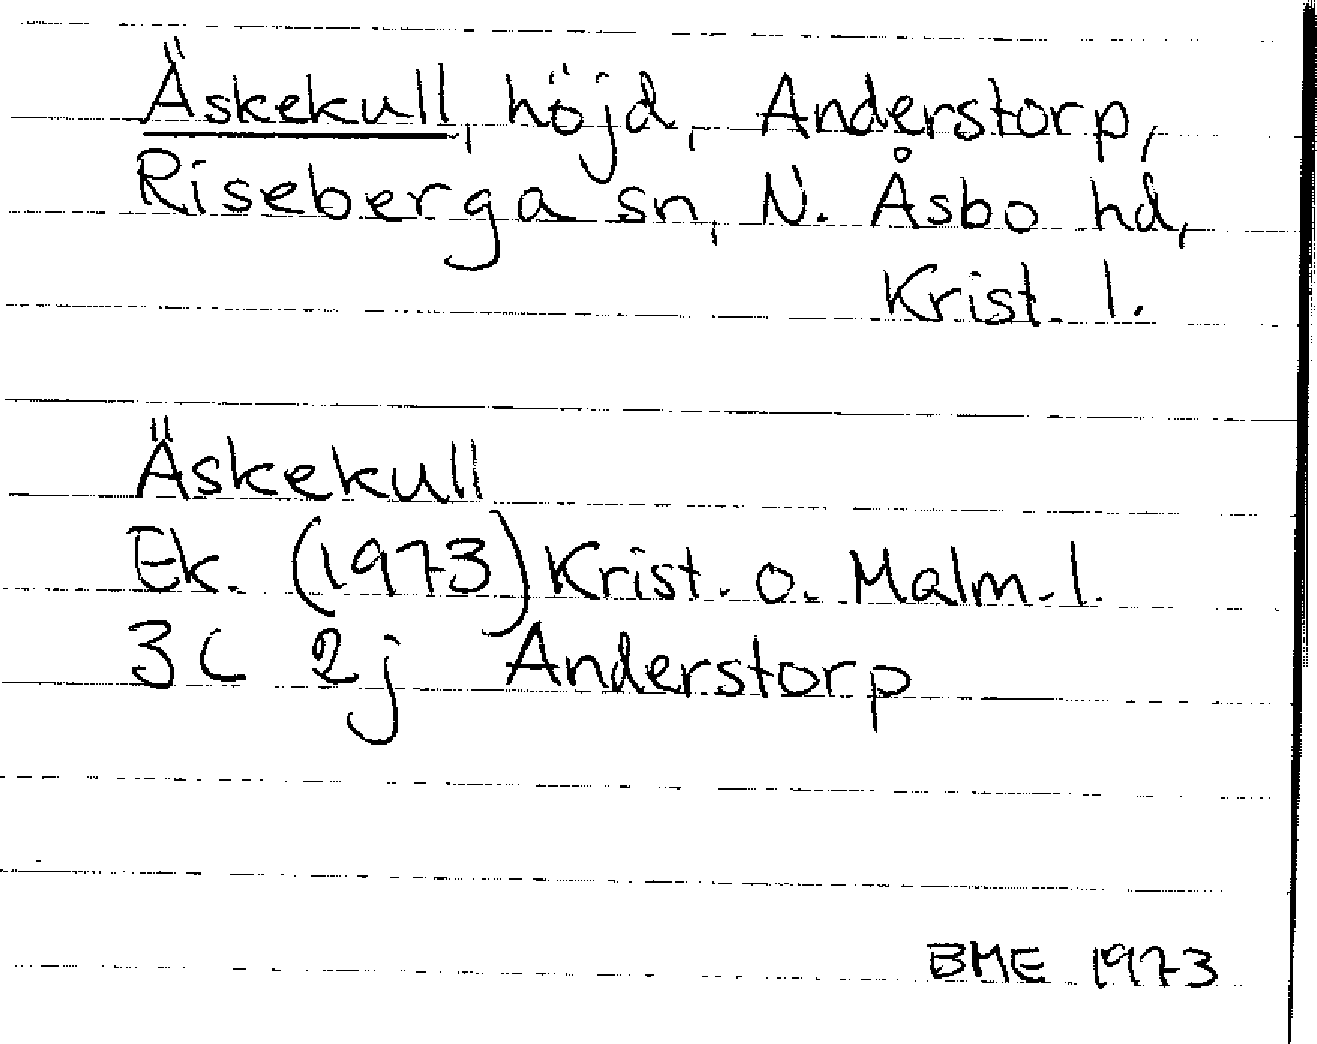 Äskekull, höjd, Anderstorp,
Riseberga sn, N. Åsbo hd,
Krist. l.
Äskekull
Ek. (1973) Krist. o. Malm. l.
3C 2j Anderstorp
BME 1973